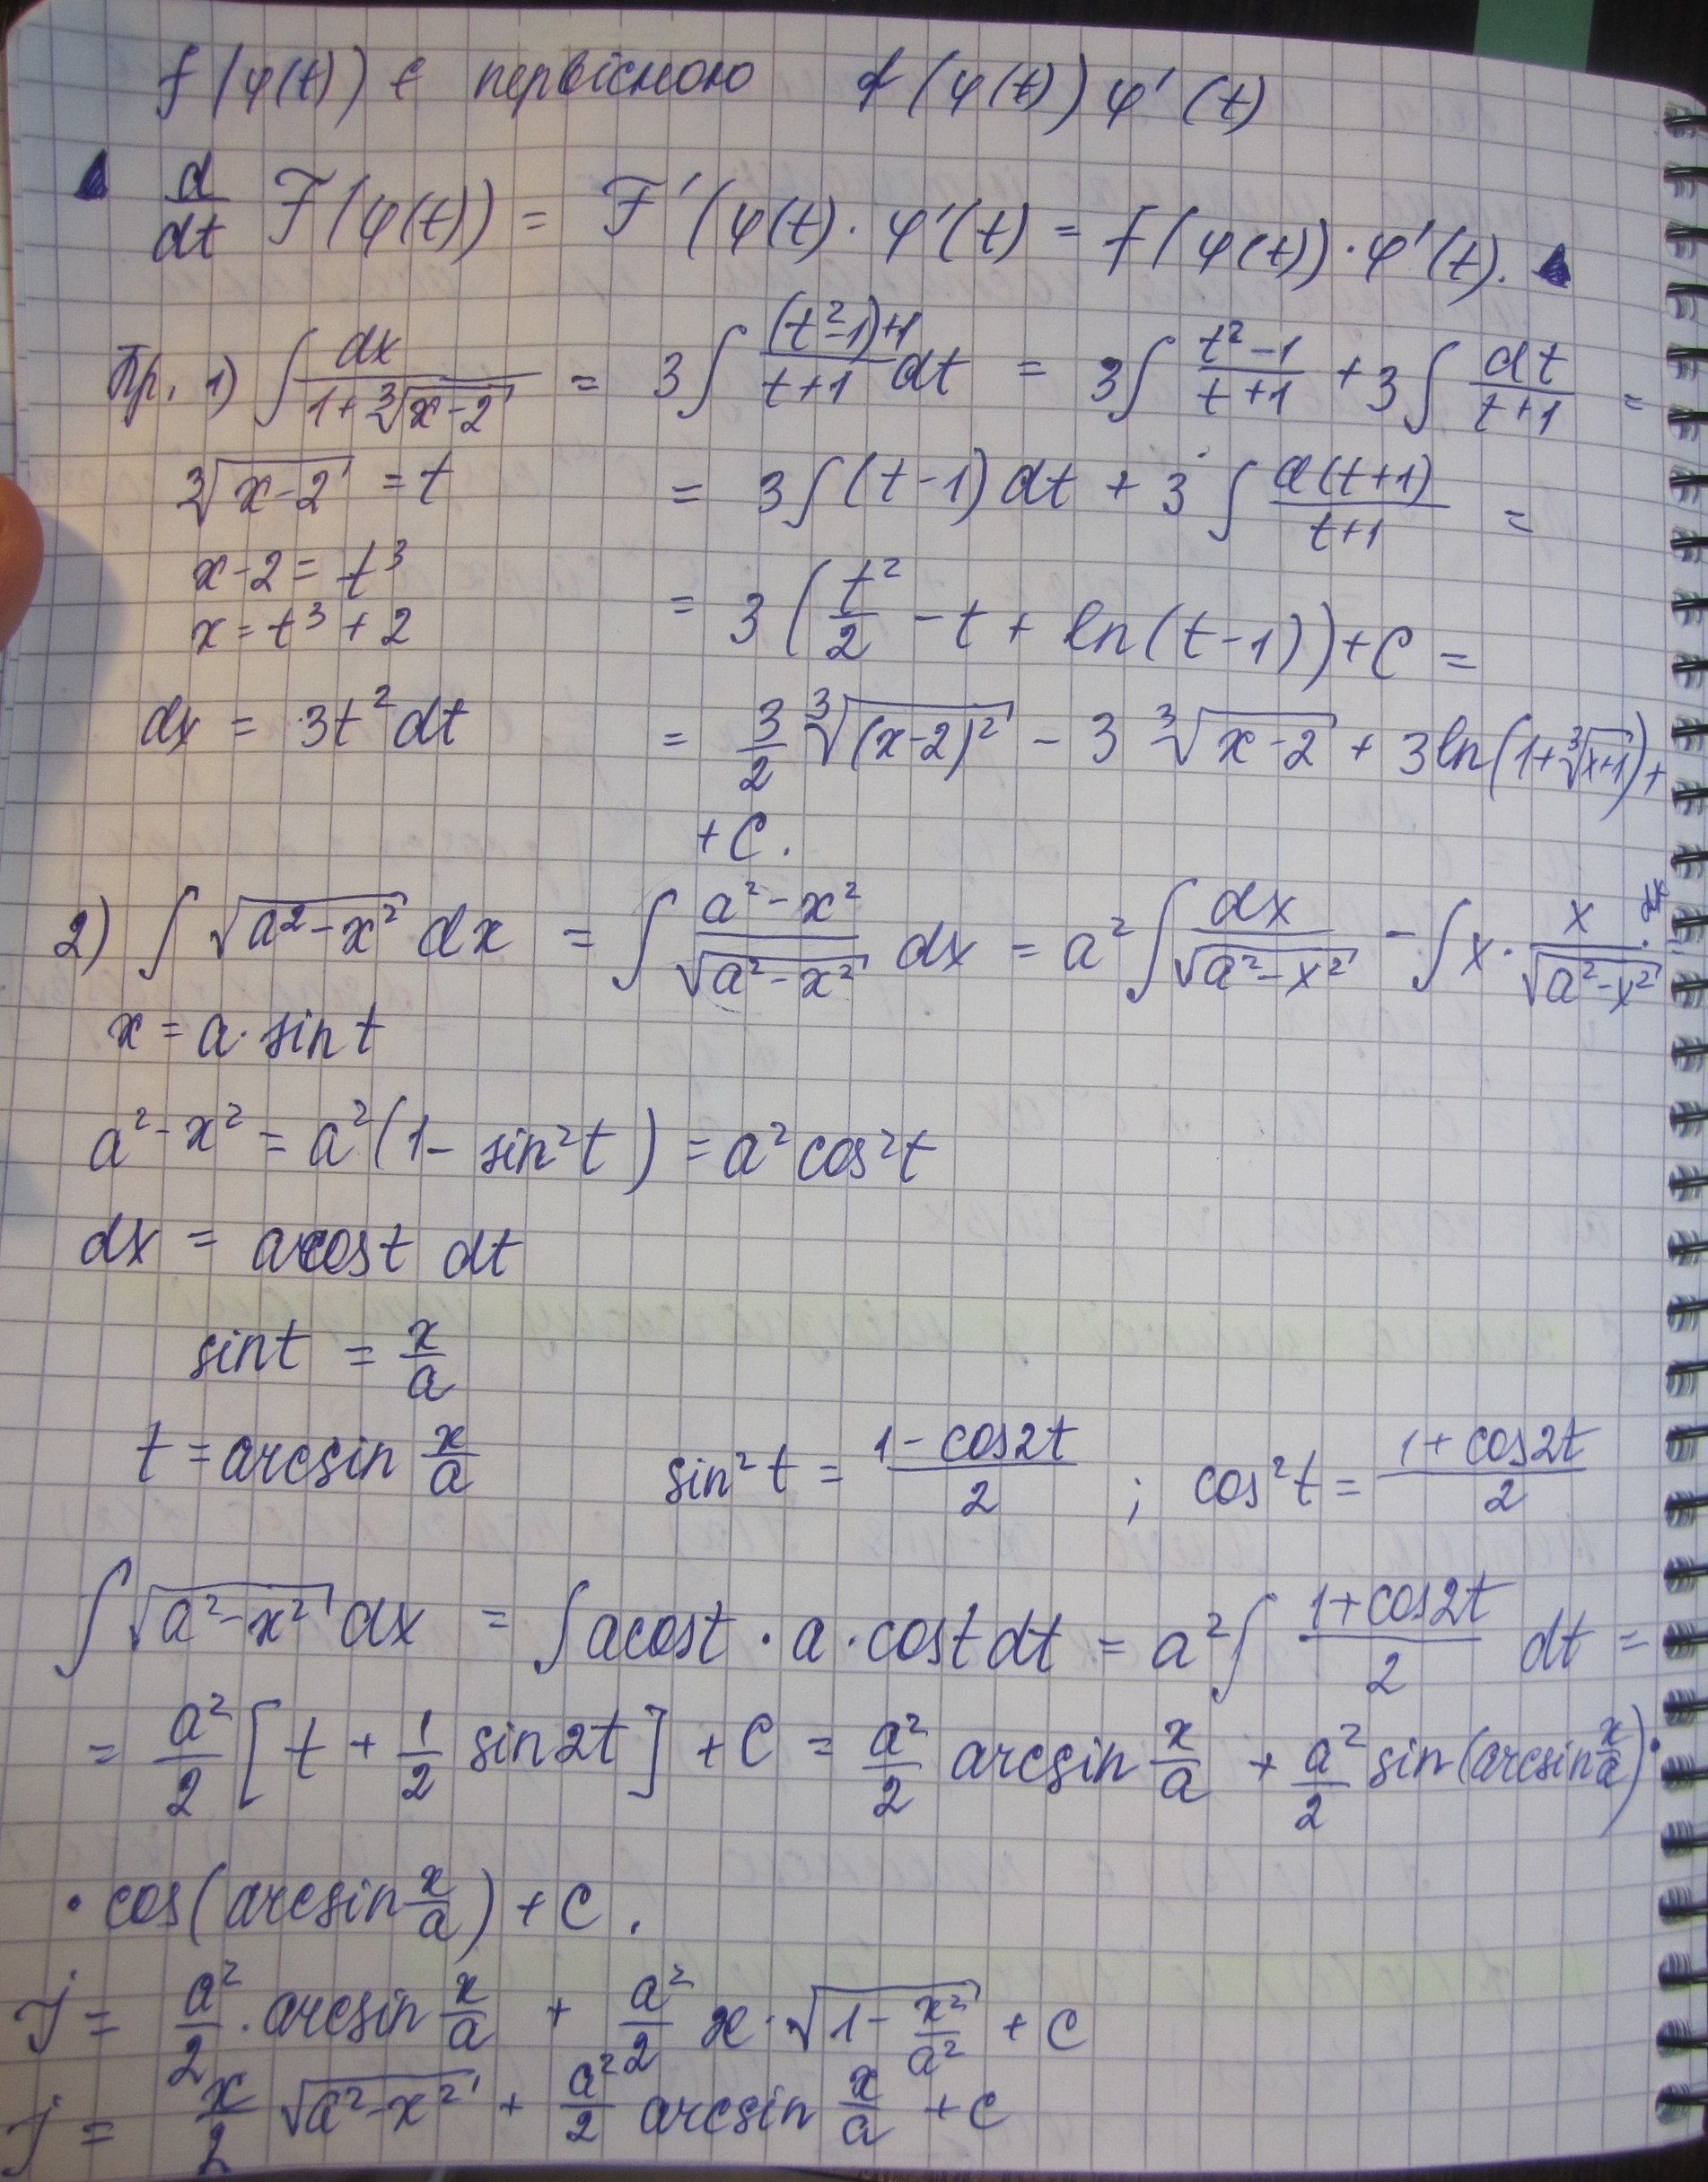 f(φ(t)) є первісною f(φ(t))φ'(t)
d/dt F(φ(t)) = F'(φ(t)·φ'(t) = f(φ(t))·φ'(t).
Пр. 1) ∫ dx/(1+∛(x-2)) = 3∫ ((t²-1)+1)/(t+1) dt = 3∫ (t²-1)/(t+1) + 3∫ dt/(t+1) =
∛(x-2) = t = 3∫(t-1)dt + 3∫ d(t+1)/(t+1) =
x-2 = t³
x = t³+2 = 3(t²/2 - t + ln(t-1))+C =
dx = 3t²dt = 3/2 ∛((x-2)²) - 3 ∛(x-2) + 3ln(1+∛(x+1))+
+C.
2) ∫ √(a²-x²) dx = ∫ (a²-x²)/√(a²-x²) dx = a²∫ dx/√(a²-x²) - ∫x· x/√(a²-x²) · dx =
x = a·sin t
a²-x² = a²(1-sin²t) = a²cos²t
dx = acost dt
sint = x/a
t = arcsin x/a sin²t = (1-cos2t)/2 ; cos²t = (1+cos2t)/2
∫ √(a²-x²) dx = ∫acost·a·cost dt = a²∫ (1+cos2t)/2 dt =
= a²/2 [t + 1/2 sin2t] + C = a²/2 arcsin x/a + a²/2 sin(arcsin x/a)·
·cos(arcsin x/a)+C.
J = a²/2 · arcsin x/a + a²/2 x·√(1-x²/a²) + C
J = x/2 √(a²-x²) + a²/2 arcsin x/a + C